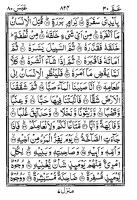 عبس ٨٠ ٨٤٤ عم ٣٠
بِأَيْدِي سَفَرَةٍ كِرَامٍ بَرَرَةٍ قُتِلَ الْإِنْسَانُ
مَا أَكْفَرَهُ مِنْ أَيِّ شَيْءٍ خَلَقَهُ مِنْ نُطْفَةٍ
خَلَقَهُ فَقَدَّرَهُ ثُمَّ السَّبِيلَ يَسَّرَهُ ثُمَّ
أَمَاتَهُ فَأَقْبَرَهُ ثُمَّ إِذَا شَاءَ أَنْشَرَهُ كَلَّا
لَمَّا يَقْضِ مَا أَمَرَهُ فَلْيَنْظُرِ الْإِنْسَانُ إِلَى
طَعَامِهِ أَنَّا صَبَبْنَا الْمَاءَ صَبًّا ثُمَّ شَقَقْنَا
الْأَرْضَ شَقًّا فَأَنْبَتْنَا فِيهَا حَبًّا وَعِنَبًا
وَقَضْبًا وَزَيْتُونًا وَنَخْلًا وَحَدَائِقَ غُلْبًا
وَفَاكِهَةً وَأَبًّا مَتَاعًا لَكُمْ وَلِأَنْعَامِكُمْ فَإِذَا
جَاءَتِ الصَّاخَّةُ يَوْمَ يَفِرُّ الْمَرْءُ مِنْ أَخِيهِ
وَأُمِّهِ وَأَبِيهِ وَصَاحِبَتِهِ وَبَنِيهِ لِكُلِّ امْرِئٍ
مِنْهُمْ يَوْمَئِذٍ شَأْنٌ يُغْنِيهِ وُجُوهٌ يَوْمَئِذٍ
مُسْفِرَةٌ ضَاحِكَةٌ مُسْتَبْشِرَةٌ وَوُجُوهٌ
منزل ٧